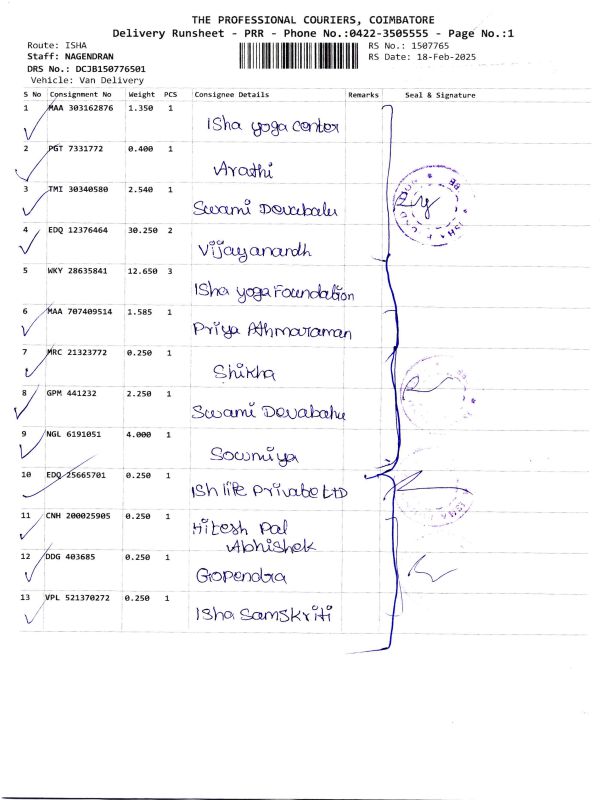 THE PROFESSIONAL COURIERS, COIMBATORE
Delivery Runsheet - PRR - Phone No.:0422-3505555 - Page No.:1
Route: ISHA
RS No.: 1507765
Staff: NAGENDRAN
RS Date: 18-Feb-2025
DRS No.: DCJB150776501
Vehicle: Van Delivery
S No Consignment No Weight PCS Consignee Details Remarks Seal & Signature
1 MAA 303162876 1.350 1
ISha yoga center
2 PGT 7331772 0.400 1
Arathi
3 TMI 30340580 2.540 1
Swami Devabalu
4 EDQ 12376464 30.250 2
Vijayanandh
5 WKY 28635841 12.650 3
ISha yoga Foundation
6 MAA 707409514 1.585 1
Priya Athmaraman
7 MRC 21323772 0.250 1
Shikha
8 GPM 441232 2.250 1
Swami Devabahu
9 NGL 6191051 4.000 1
Sowmiya
10 EDQ 25665701 0.250 1
ISh life Private LTD
11 CNH 200025905 0.250 1
Hitesh Pal
Abhishek
12 DDG 403685 0.250 1
Gopendra
13 VPL 521370272 0.250 1
ISha Samskriti